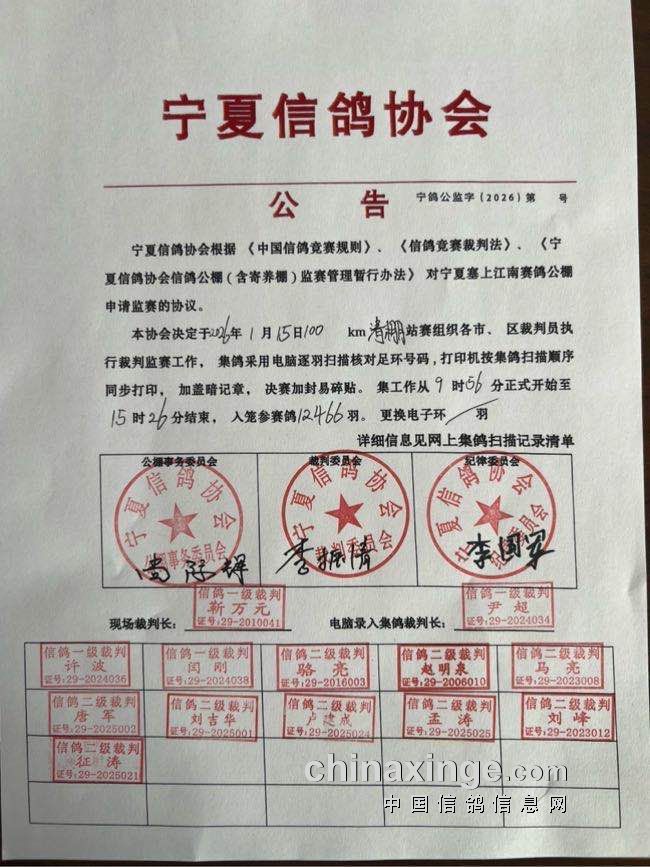 宁夏信鸽协会
公 告 宁鸽公监字(2026)第 号
宁夏信鸽协会根据《中国信鸽竞赛规则》、《信鸽竞赛裁判法》、《宁
夏信鸽协会信鸽公棚(含寄养棚)监赛管理暂行办法》对宁夏塞上江南赛鸽公棚
申请监赛的协议。
本协会决定于2026年1月15日100 km清棚站赛组织各市、区裁判员执
行裁判监赛工作，集鸽采用电脑逐羽扫描核对足环号码,打印机按集鸽扫描顺序
同步打印，加盖暗记章，决赛加封易碎贴。集工作从9时56分正式开始至
15时26分结束，入笼参赛鸽12466羽。更换电子环/羽
详细信息见网上集鸽扫描记录清单
公棚事务委员会 裁判委员会 纪律委员会
宁夏信鸽协会 宁夏信鸽协会 宁夏信鸽协会
公棚事务委员会 裁判委员会 纪律委员会
李振清 李国军
信鸽一级裁判 信鸽一级裁判
现场裁判长: 靳万元 电脑录入集鸽裁判长: 尹超
证号:29-2010041 证号:29-2024034
信鸽一级裁判 信鸽一级裁判 信鸽二级裁判 信鸽二级裁判 信鸽二级裁判
许波 闫刚 骆亮 赵明泉 马亮
证号:29-2024036 证号:29-2024038 证号:29-2016003 证号:29-2006010 证号:29-2023008
信鸽二级裁判 信鸽二级裁判 信鸽二级裁判 信鸽二级裁判 信鸽二级裁判
唐军 刘吉华 卢建成 孟涛 刘峰
证号:29-2025002 证号:29-2025001 证号:29-2025024 证号:29-2025025 证号:29-2023012
信鸽二级裁判
征涛
证号:29-2025021
chinaxinge.com
中国信鸽信息网